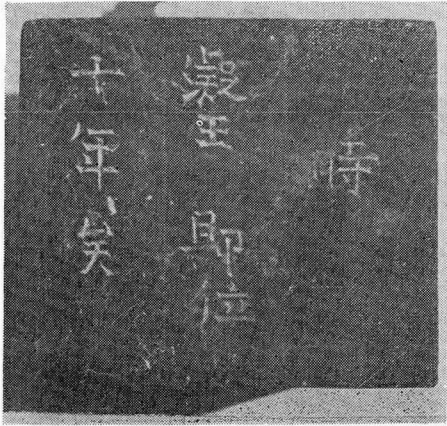 時
王 即位
十年矣